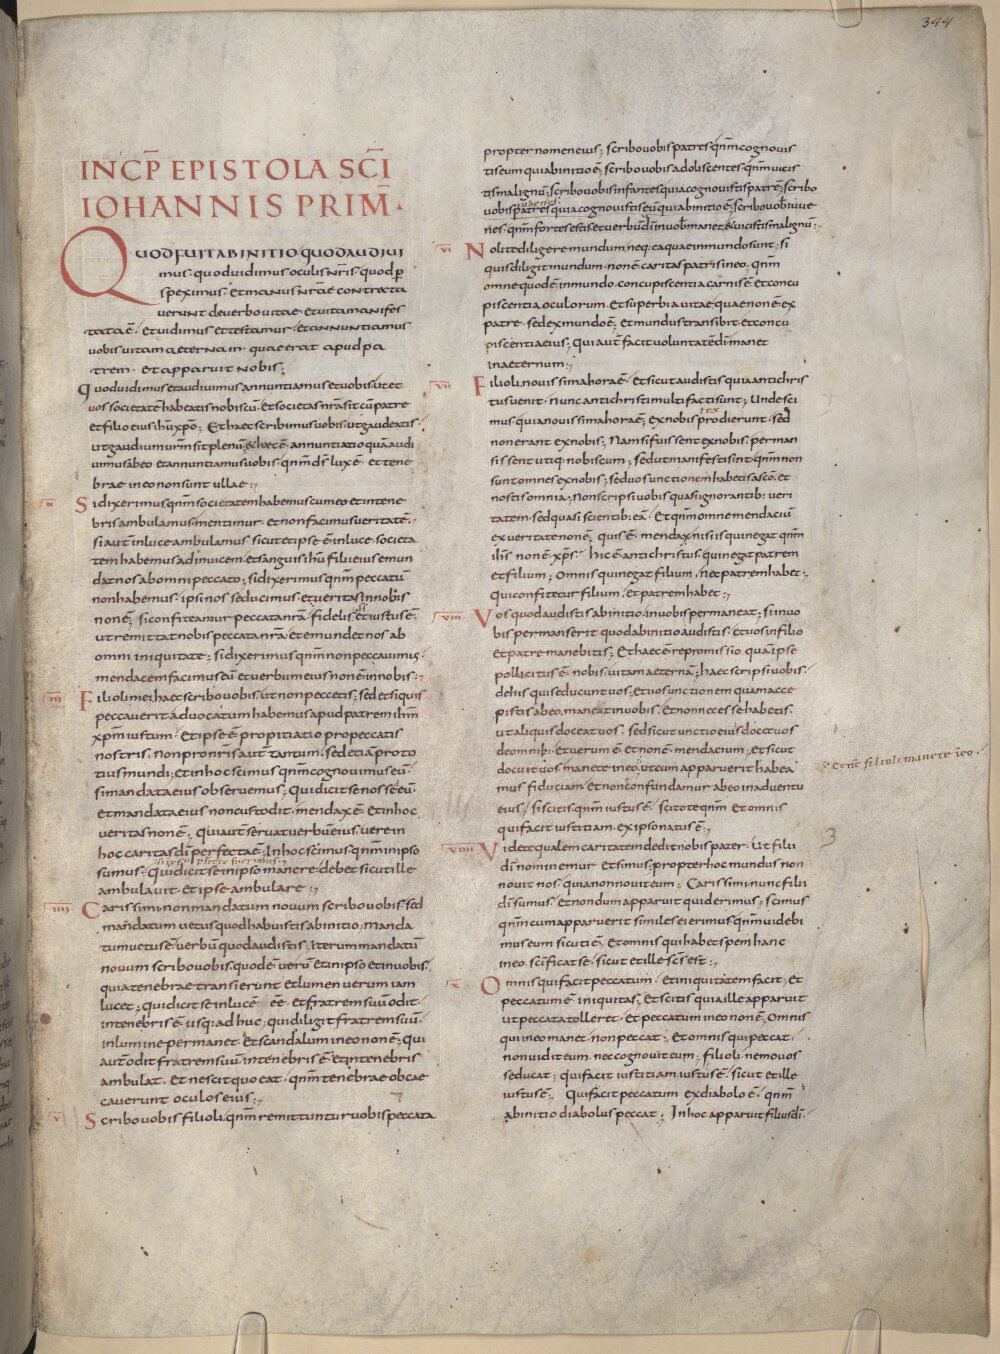 344
INCP̄ EPISTOLA SC̄I
IOHANNIS PRIM̄.
QUOD FUIT AB INITIO. quod audiui
mus. quod uidimus oculis nr̄is. quod ꝑ
speximus. et manus nr̄ae contrecta
uerunt de uerbo uitae. et uita manifes
tata ē. et uidimus et testamur. et annuntiamus
uobis uitam aeternam. quae erat apud pa
trem. et apparuit nobis;
Quod uidimus et audiuimus annuntiamus et uobis. ut et
uos societatē habeatis nobiscū. et societas nr̄a sit cū patre
et filio eius ih̄u xp̄o. Et haec scribimus uobis. ut gaudeatis.
ut gaudium ur̄m sit plenū. & haec ē annuntiatio quā audi
uimus ab eo et annuntiamus uobis. qnm̄ ds̄ lux ē. et tene
brae in eo non sunt ullae;
II Si dixerimus qnm̄ societatem habemus cum eo et in tene
bris ambulamus. mentimur. et non facimus ueritatē.
si aut̄ in luce ambulamus sicut et ipse ē in luce. societa
tem habemus ad inuicem. et sanguis ih̄u filii eius emun
dat nos ab omni peccato; si dixerimus qnm̄ peccatū
non habemus. ipsi nos seducimus. et ueritas in nobis
non ē. si confiteamur peccata nr̄a. fidelis et iustus ē.
ut remittat nobis peccata nr̄a. et emundet nos ab
omni iniquitate; si dixerimus qnm̄ non peccauimus.
mendacem facimus eū. et uerbum eius non ē in nobis.
III Filioli mei. haec scribo uobis. ut non peccetis; sed et si quis
peccauerit. aduocatum habemus apud patrem ih̄m
xp̄m iustum. Et ipse ē propitiatio pro peccatis
nostris. Non pro nr̄is aut̄ tantum. sed etiā pro to
tius mundi; et in hoc scimus qnm̄ cognouimus eū.
si mandata eius obseruemus; Qui dicit se nosse eū.
et mandata eius non custodit. mendax ē. Et in hoc
ueritas non ē. qui aut̄ seruat uerbū eius. uere in
hoc caritas dī perfecta ē. In hoc scimus. qnm̄ in ipso
sumus. Qui dicit se in ipso manere. debet sicut ille
ambulauit. et ipse ambulare;
IIII Carissimi. non mandatum nouum scribo uobis. sed
mandatum uetus quod habuistis ab initio. Manda
tum uetus ē. uerbū quod audistis; Iterum mandatū
nouum scribo uobis. quod ē. uerū et in ipso et in uobis.
quia tenebrae transierunt. et lumen uerum iam
lucet; Qui dicit se in luce ēē. et fratrem suū odit.
in tenebris ē. usq: ad huc. qui diligit fratrem suū.
in lumine permanet. et scandalum in eo non ē; qui
aut̄ odit fratrem suū. in tenebris ē et in tenebris
ambulat. et nescit quo eat. qnm̄ tenebrae obcae
cauerunt oculos eius;
V Scribo uobis filioli. qnm̄ remittuntur uobis peccata
propter nomen eius; scribo uobis patres. qnm̄ cognouis
tis eum qui ab initio ē; scribo uobis adoliscentes. qnm̄ uicis
tis malignū; scribo uobis infantes quia cognouistis patrē; scribo
uobis patres quia cognouistis eū qui ab initio ē; scribo uob iuue
nes. qnm̄ fortes estis. et uerbū dī in uob manet. & uicistis malignū;
VI Nolite diligere mundum. neq: ea quae in mundo sunt; si
quis diligit mundum. non ē caritas patris in eo. qnm̄
omne quod ē in mundo. concupiscentia carnis ē. et concu
piscentia oculorum. et superbia uitae. quae non ē ex
patre. sed ex mundo ē; et mundus transibit. et concu
piscentia eius; Qui aut̄ facit uoluntatē dī. manet
in aeternum;
VII Filioli. nouissima hora ē. et sicut audistis quia antichris
tus uenit. nunc antichristi multi facti sunt; unde sci
mus. quia nouissima hora ē. ex nobis prodierunt. sed
non erant ex nobis; Nam si fuissent ex nobis. perman
sissent utiq: nobiscum; sed ut manifesti sint. qnm̄ non
sunt omnes ex nobis; sed uos unctionem habetis a sc̄o. et
nostis omnia; Non scripsi uobis quasi ignorantib: ueri
tatem. sed quasi scientib: eā. Et qnm̄ omne mendaciū
ex ueritate non ē; quis ē. mendax nisi is qui negat qnm̄
ih̄s non ē xp̄s. hic ē antichristus. qui negat patrem
et filium; Omnis qui negat filium. nec patrem habet;
qui confitetur filium. et patrem habet;
VIII Vos quod audistis ab initio. in uobis permaneat; si in uo
bis permanserit quod ab initio audistis. et uos in filio
et patre manebitis; Et haec ē repromissio quā ipse
pollicitus ē nobis. uitam aeternā; haec scripsi uobis.
de his qui seducunt uos. et uos unctionem quam acce
pistis ab eo. maneat in uobis. Et non necesse habetis.
ut aliquis doceat uos. sed sicut unctio eius docet uos
de omnib: et uerum ē. et non ē. mendacium. et sicut
docuit uos. manete in eo. ut cum apparuerit habea
mus fiduciam. et non confundamur ab eo in aduentu
eius; si scitis qnm̄ iustus ē. scitote qnm̄ et omnis
qui facit iustitiam. ex ipso natus ē;
et nc̄ filioli manete in eo.
3
VIIII Videte qualem caritatem dedit nobis pater. ut filii
dī nominemur. et simus. propter hoc mundus non
nouit nos. quia non nouit eum; Carissimi. nunc filii
dī sumus. et nondum apparuit quid erimus; scimus
qnm̄ cum apparuerit. similes ei erimus. qnm̄ uidebi
mus eum sicuti ē. et omnis qui habet spem hanc
in eo. sc̄ificat se. sicut et ille sc̄s est;
X Omnis qui facit peccatum. et iniquitatem facit. et
peccatum ē iniquitas. et scitis quia ille apparuit
ut peccata tolleret. et peccatum in eo non ē; Omnis
qui in eo manet. non peccat; et omnis qui peccat.
non uidit eum. nec cognouit eum. filioli nemo uos
seducat; qui facit iustitiam. iustus ē. sicut et ille
iustus ē; Qui facit peccatum ex diabolo ē. qnm̄
ab initio diabolus peccat. In hoc apparuit filius dī.